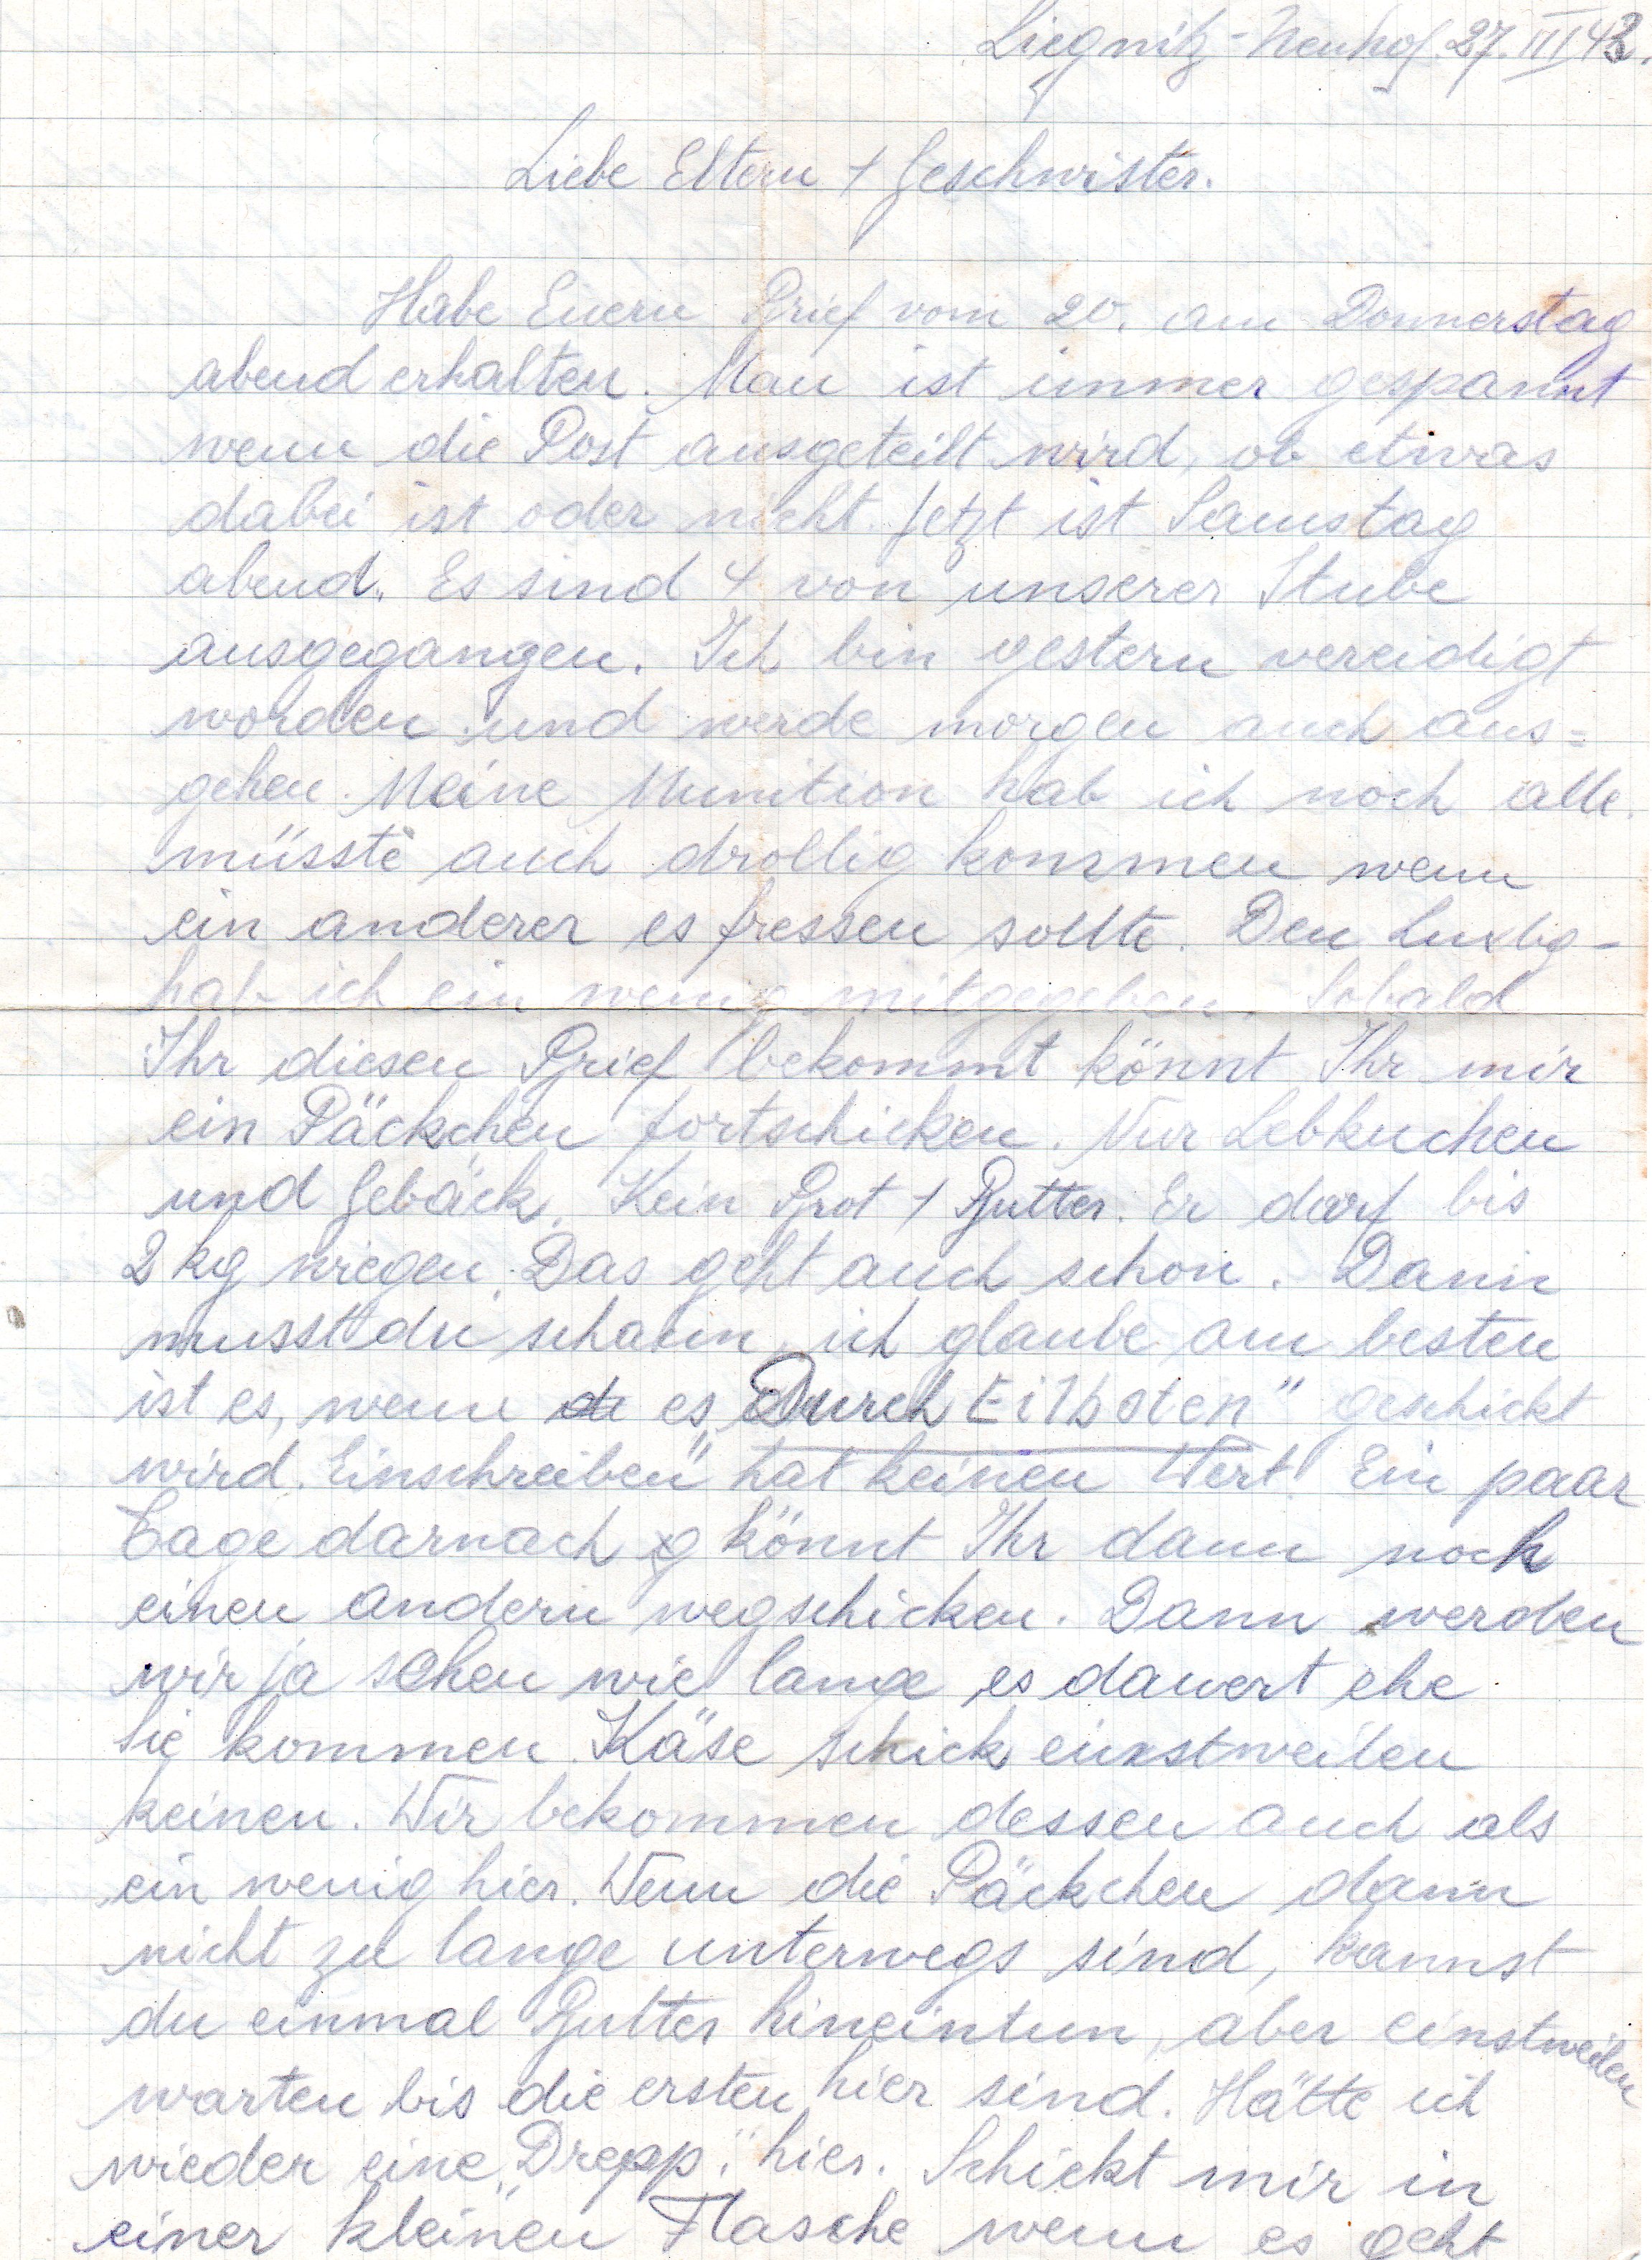 Liegnitz-Neuhof. 27. III 43.
Liebe Eltern + Geschwister.
Habe Euern Brief vom 20. am Donnerstag
abend erhalten. Man ist immer gespannt
wenn die Post ausgeteilt wird, ob etwas
dabei ist oder nicht. Jetzt ist Samstag
abend. Es sind 4 von unserer Stube
ausgegangen. Ich bin gestern vereidigt
worden und werde morgen auch aus=
gehen. Meine Munition hab ich noch alle.
müsste auch drollig kommen wenn
ein anderer es fressen sollte. Den Luxbg-
hab ich ein wenig mitgegeben. Sobald
Ihr diesen Brief bekommt könnt Ihr mir
ein Päckchen fortschicken. Nur Lebkuchen
und Gebäck. Kein Brot + Butter. Er darf bis
2 kg wiegen. Das geht auch schon. Dann
musst du schaun, ich glaube am besten
ist es, wenn es „Durch Eilboten" geschickt
wird. Einschreiben" hat keinen Wert! Ein paar
Tage darnach könnt Ihr dann noch
einen andern wegschicken. Dann werden
wir ja sehen wie lange es dauert ehe
sie kommen. Käse schick einstweilen
keinen. Wir bekommen dessen auch als
ein wenig hier. Wenn die Päckchen dann
nicht zu lange unterwegs sind, kannst
du einmal Butter hineintun, aber einstweilen
warten bis die ersten hier sind. Hätte ich
wieder eine „Drepp" hier. Schickt mir in
einer kleinen Flasche wenn es geht